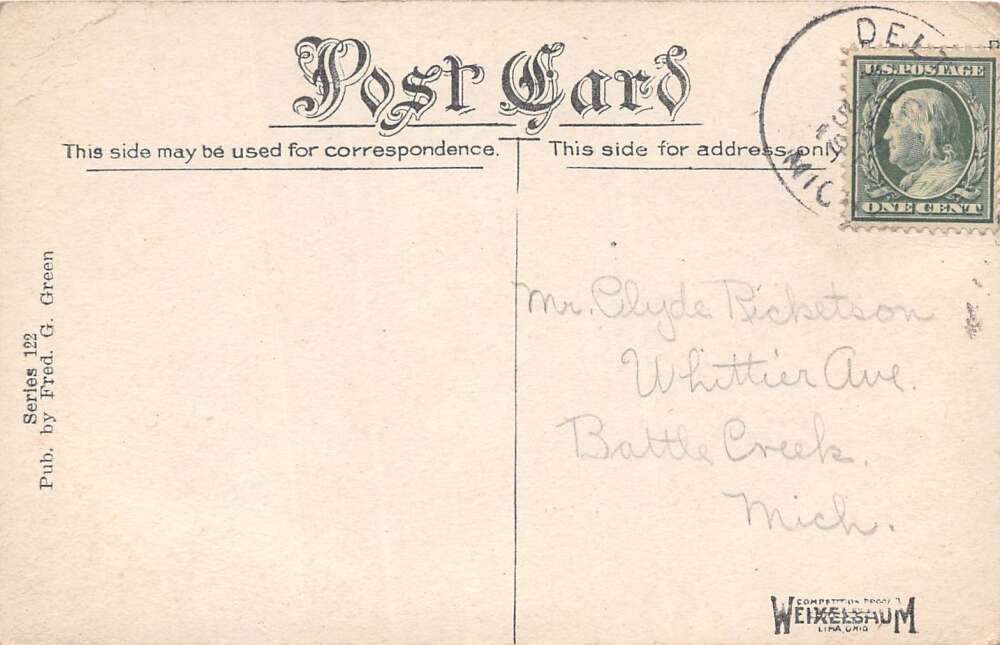 Post Card
This side may be used for correspondence.
This side for address only
U.S. POSTAGE
ONE CENT
Series 122
Pub. by Fred. G. Green
Mr. Clyde Ricketson
Whittier Ave.
Battle Creek,
Mich.
WEIXELBAUM
LIMA, OHIO